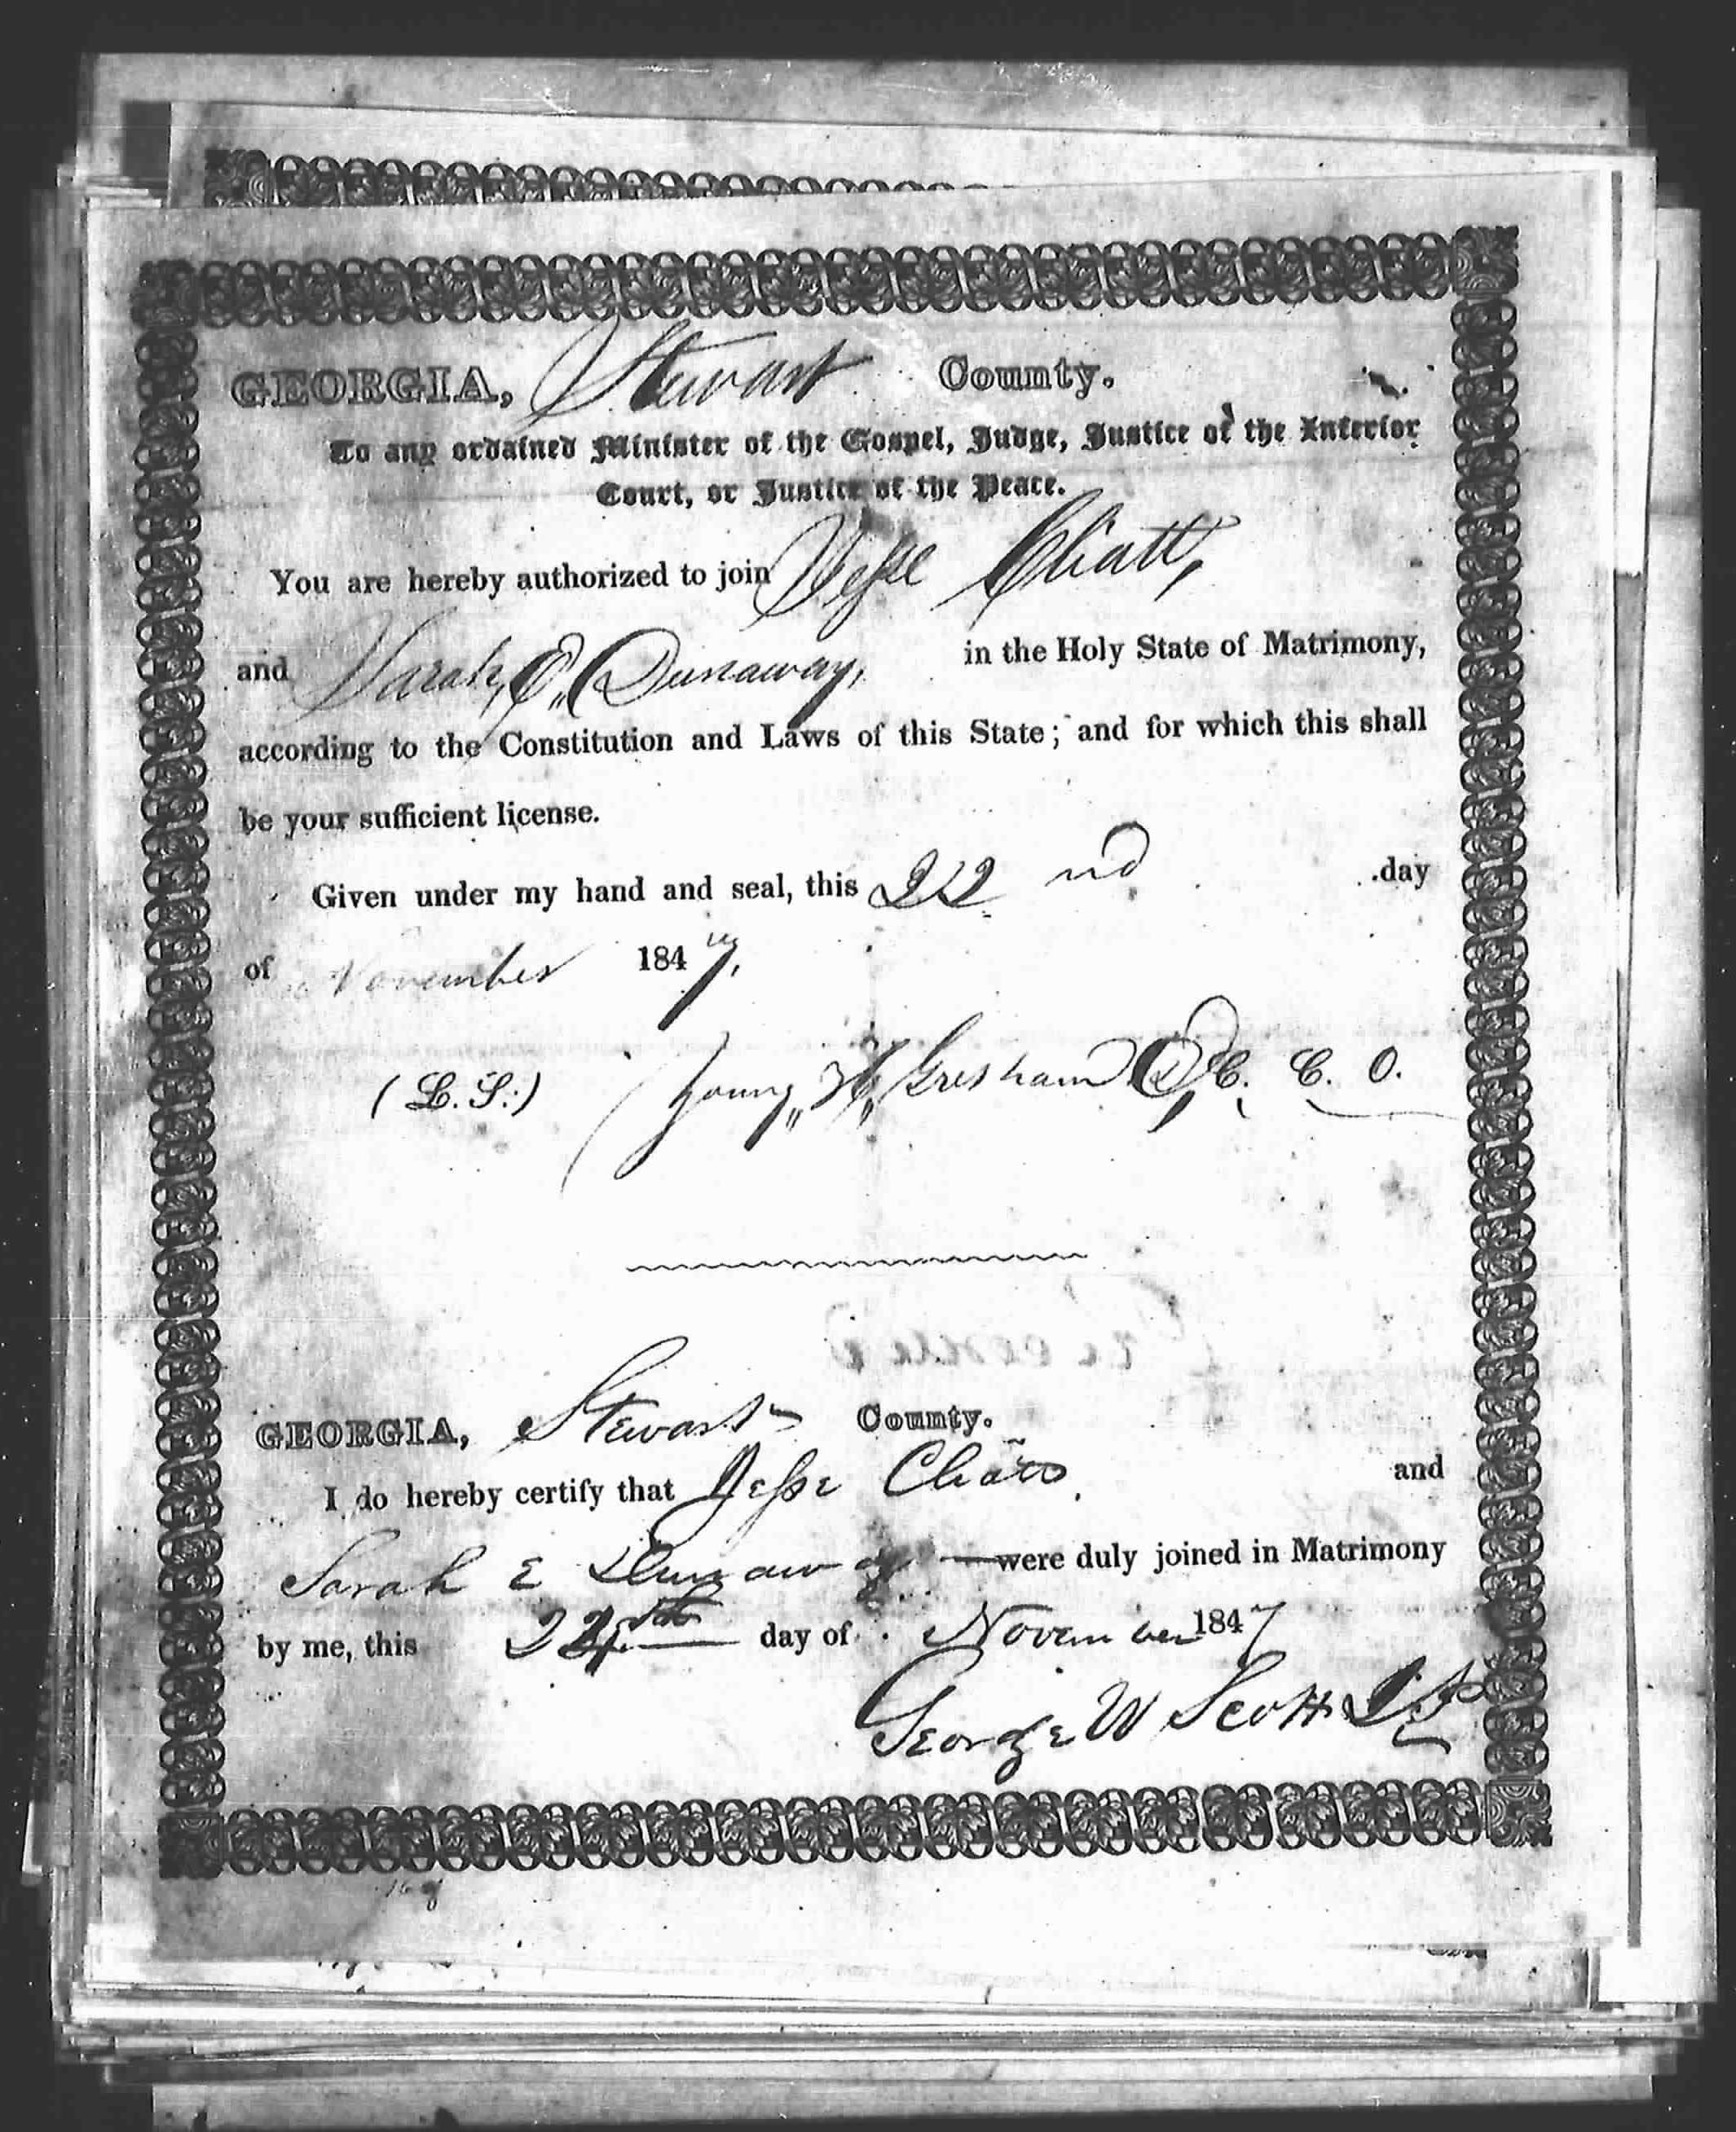 GEORGIA, Stewart County.
To any ordained Minister of the Gospel, Judge, Justice of the Inferior
Court, or Justice of the Peace.
You are hereby authorized to join Jesse Cliatt,
and Sarah, E,, Dunaway, in the Holy State of Matrimony,
according to the Constitution and Laws of this State; and for which this shall
be your sufficient license.
Given under my hand and seal, this 22nd day
of November 1847,
(L. S.) Young,, H,, Gresham D, C. C. O.
GEORGIA, Stewart County.
I do hereby certify that Jesse Cliatt and
Sarah E Dunaway were duly joined in Matrimony
by me, this 24th day of November 1847
George W Scott J P